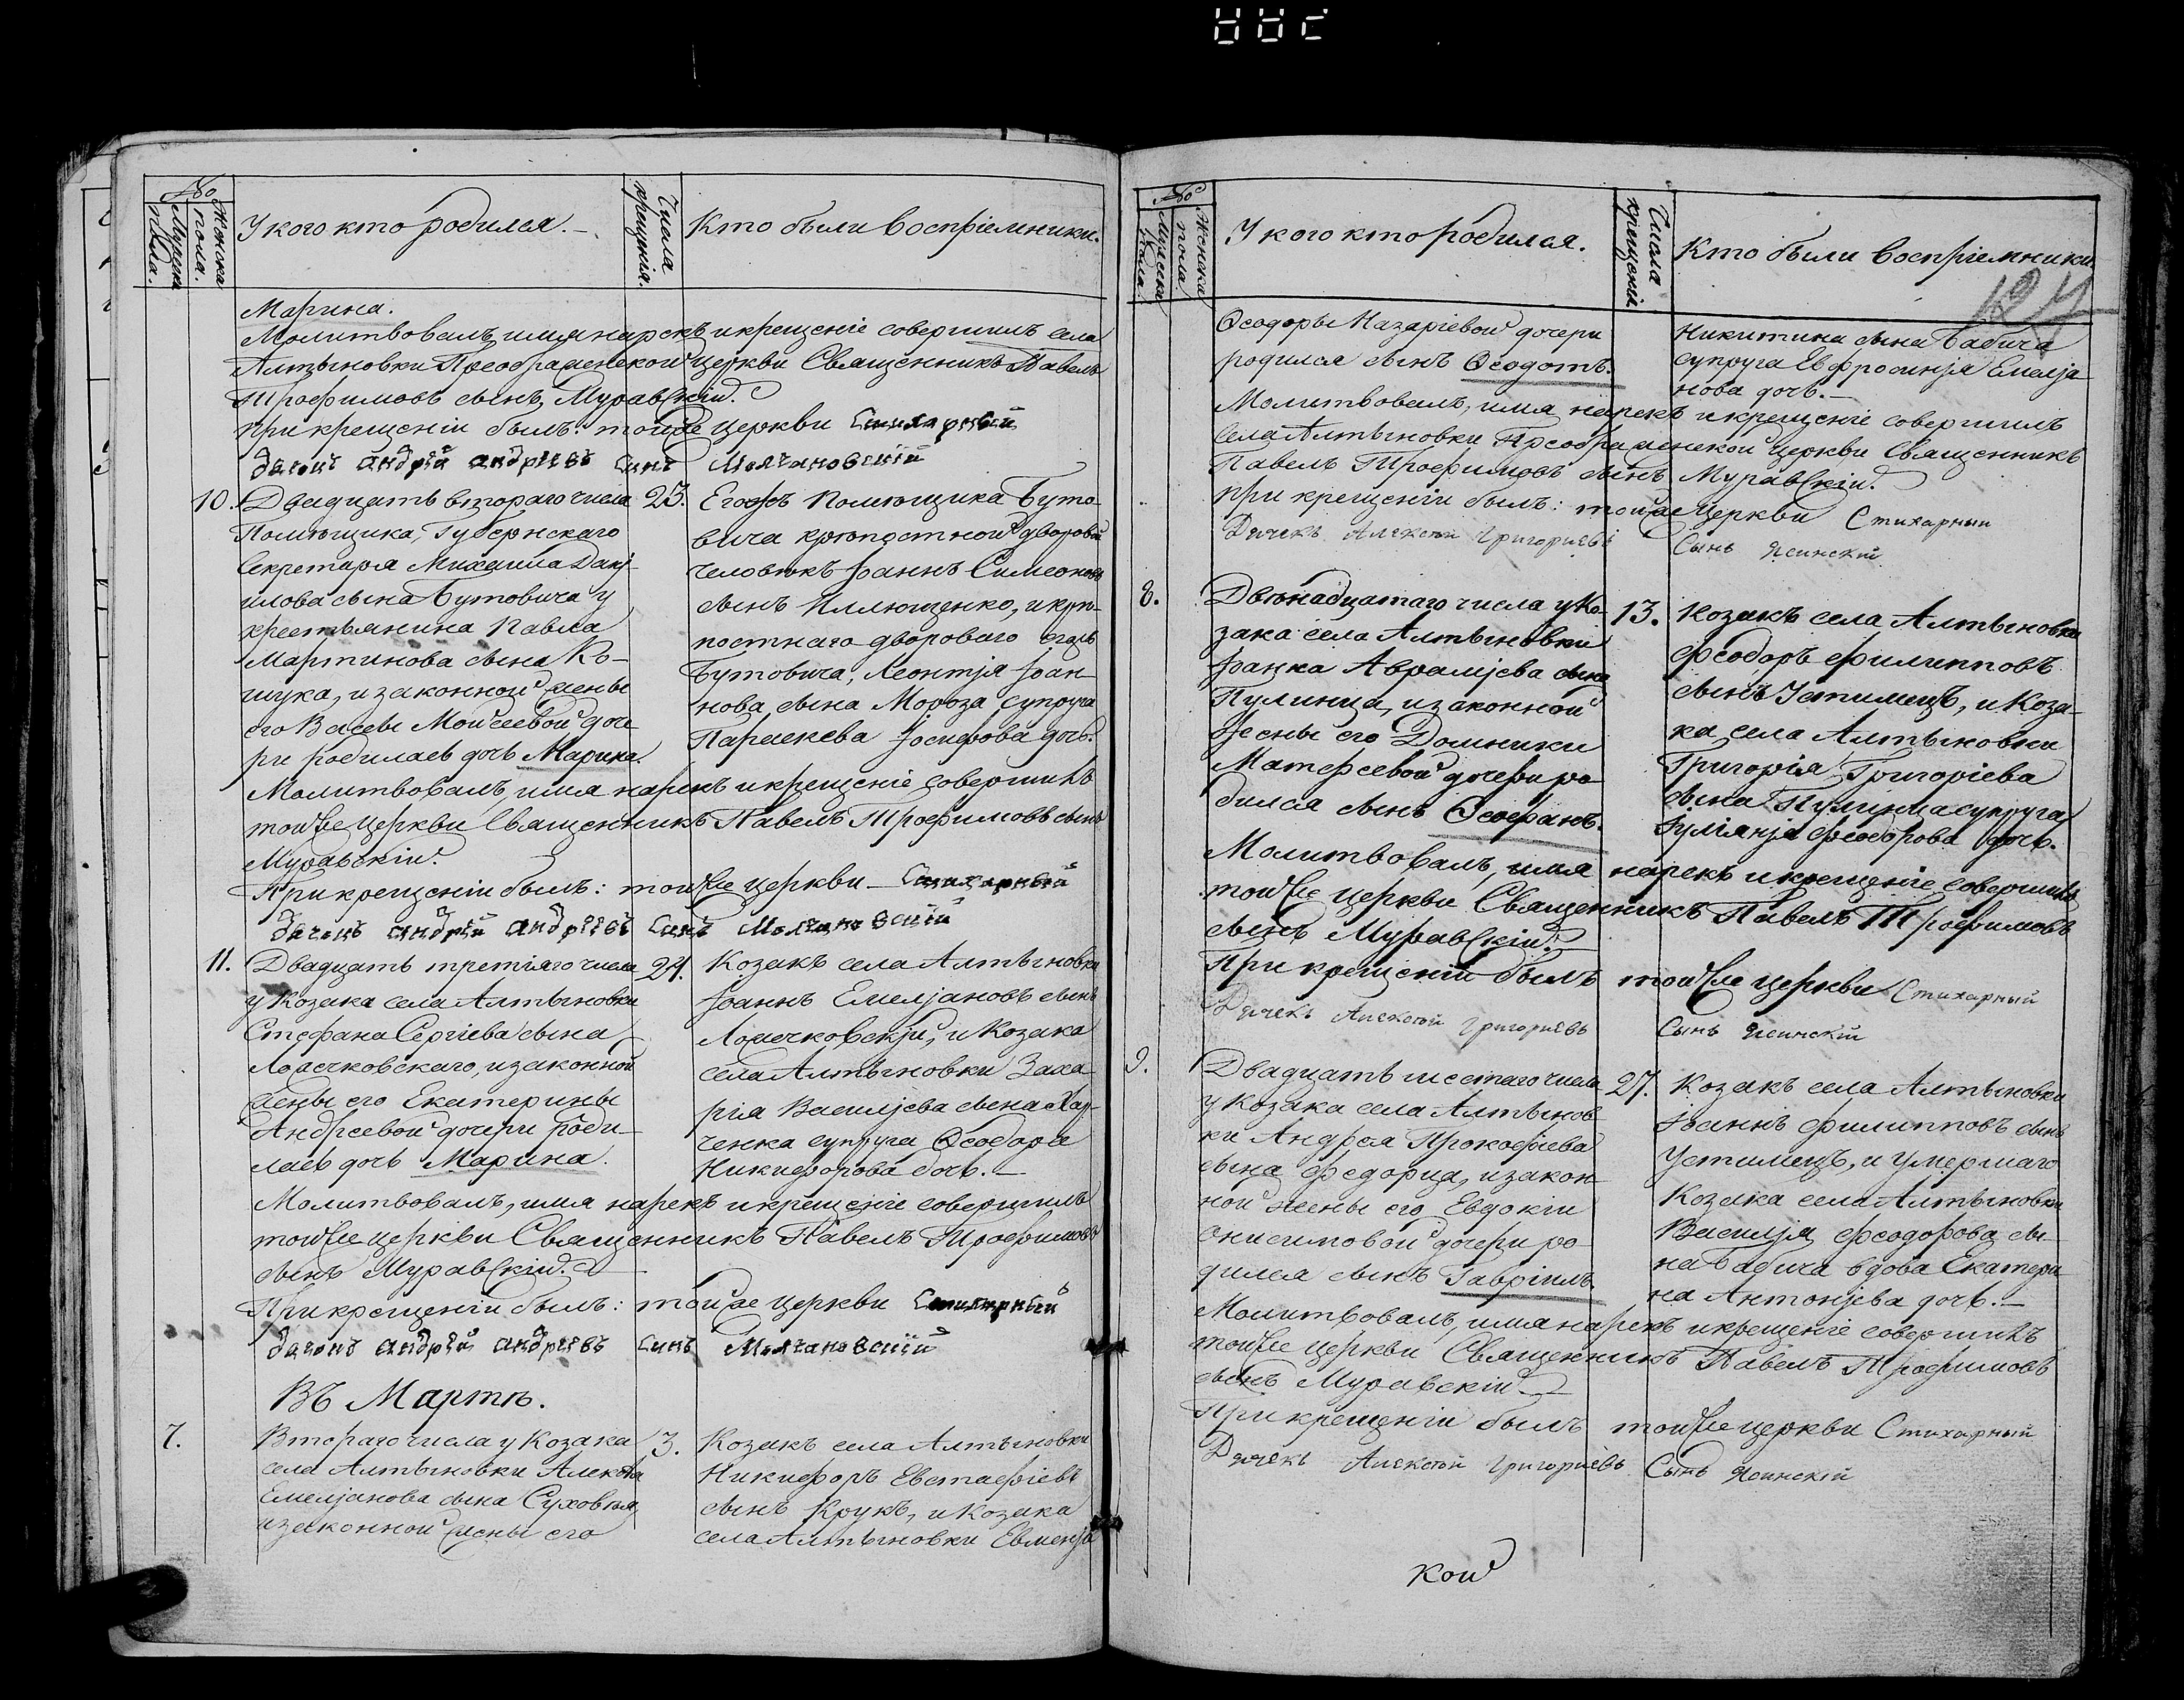 №
Мужеска пола.
Женска пола.
У кого кто родился.
Числа крещенія.
Кто были воспріемники.
Марина.
Молитвовалъ, имя нарекъ и крещеніе совершилъ села
Алтыновки Преображенской церкви Священникъ Павелъ
Трофимовъ сынъ Муравскій.
При крещеніи былъ: тойже церкви Стихарный
Дячокъ Андрей Андріевъ сынъ Молчановскій
10. Двадцать втораго числа
Помѣщика, Губернскаго
Секретаря Михаила Дані-
илова сына Бутовича у
крестьянина Павла
Мартинова сына Ко-
шука, и законной жены
его Вассы Мойсеевой доче
ри родилась дочь Марина.
23. Егожъ Помѣщика Буто-
вича крѣпостной дворовый
человѣкъ Іоаннъ Симеоновъ
сынъ Иллющенко, и крѣ-
постнаго двороваго егожъ
Бутовича, Леонтія Іоан-
нова сына Мороза супруга
Параскева Іосифова дочь.
Молитвовалъ, имя нарекъ и крещеніе совершилъ
тойже церкви Священникъ Павелъ Трофимовъ сынъ
Муравскій.
При крещеніи былъ: тойже церкви Стихарный
Дячокъ Андрей Андріевъ сынъ Молчановскій
11. Двадцать третіяго числа
у Козака села Алтыновки
Стефана Сергіева сына
Ложечковскаго, и законной
жены его Екатерины
Андреевой дочери роди-
лась дочь Марина.
24. Козакъ села Алтыновки
Іоаннъ Емеліановъ сынъ
Ложечковскій, и Козака
села Алтыновки Заха-
рія Василіева сына Хар-
ченка супруга Ѳеодора
Никифорова дочь.
Молитвовалъ, имя нарекъ и крещеніе совершилъ
тойже церкви Священникъ Павелъ Трофимовъ
сынъ Муравскій.
При крещеніи былъ: тойже церкви Стихарный
Дячокъ Андрей Андріевъ сынъ Молчановскій
Въ Мартѣ.
7. Втораго числа у Козака
села Алтыновки Алексѣя
Емеліанова сына Суховѣя,
и законной жены его
3. Козакъ села Алтыновки
Никифоръ Евстафіевъ
сынъ Крукъ, и Козака
села Алтыновки Евменія
№
Мужеска пола.
Женска пола.
У кого кто родился.
Числа крещенія.
Кто были воспріемники.
Ѳеодоры Назаріевой дочери
родился сынъ Ѳеодотъ.
Никитина сына Бабича
супруга Евфросинія Емелія
нова дочь.
Молитвовалъ, имя нарекъ и крещеніе совершилъ
села Алтыновки Преображенской церкви Священникъ
Павелъ Трофимовъ сынъ Муравскій.
При крещеніи былъ: тойже церкви Стихарный
Дячекъ Алексѣй Григоріевъ Сынъ Ясинскій
8. Двѣнадцатаго числа у Ко-
зака села Алтыновки
Іоанна Авраміева сына
Пулинца, и законной
жены его Домники
Матфеевой дочери ро-
дился сынъ Ѳеофанъ.
13. Козакъ села Алтыновки
Феодоръ Филипповъ
сынъ Устимецъ, и Коза-
ка села Алтыновки
Григорія Григоріева
сына Пулинца супруга
Іуліанія Феодорова дочь.
Молитвовалъ, имя нарекъ и крещеніе совершилъ
тойже церкви Священникъ Павелъ Трофимовъ
сынъ Муравскій.
При крещеніи былъ тойже церкви Стихарный
Дячекъ Алексѣй Григоріевъ Сынъ Ясинскій
9. Двадцать шестаго числа
у Козака села Алтынов
ки Андрея Прокофіева
сына Федорца, и закон-
ной жены его Евдокіи
Онисимовой дочери ро-
дился сынъ Гавріилъ.
27. Козакъ села Алтыновки
Іоаннъ Филипповъ сынъ
Устимецъ, и умершаго
Козака села Алтыновки
Василія Феодорова сы-
на Бабича вдова Екатери
на Антоніева дочь.
Молитвовалъ, имя нарекъ и крещеніе совершилъ
тойже церкви Священникъ Павелъ Трофимовъ
сынъ Муравскій
При крещеніи былъ тойже церкви Стихарный
Дячекъ Алексѣй Григоріевъ Сынъ Ясинскій
кой